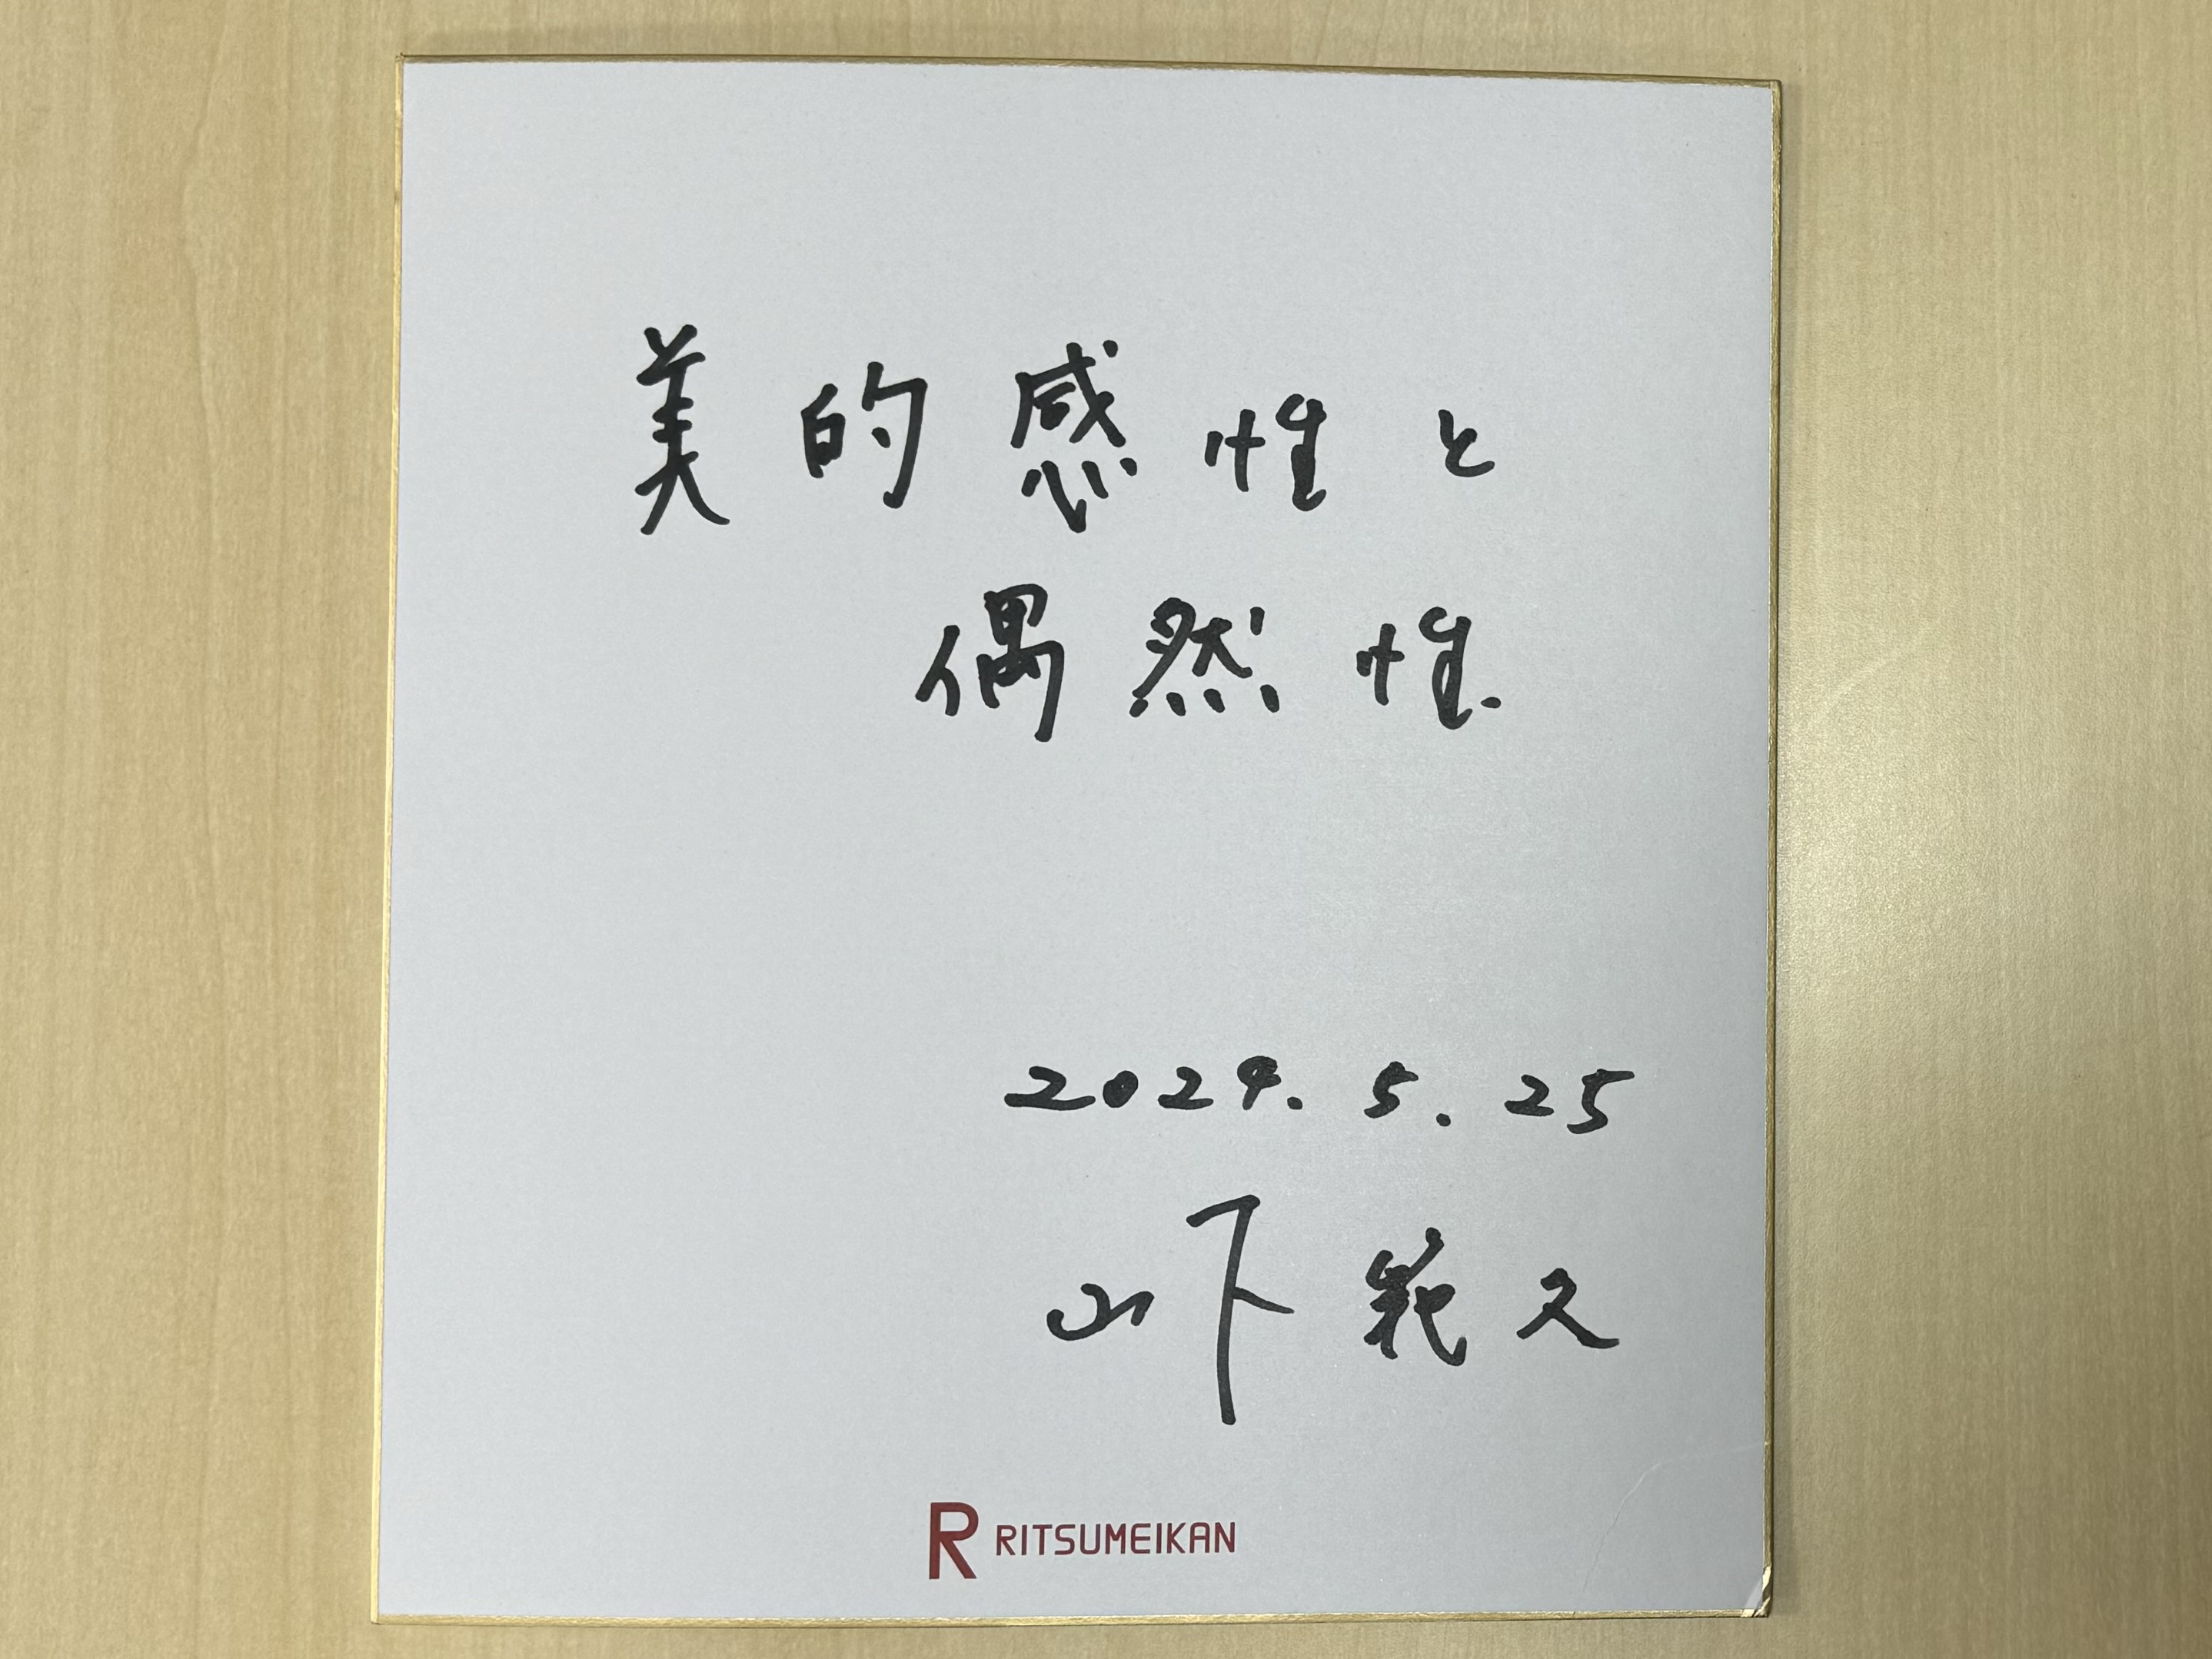 美的感性と
偶然性.
2024. 5. 25
山下範久
R RITSUMEIKAN